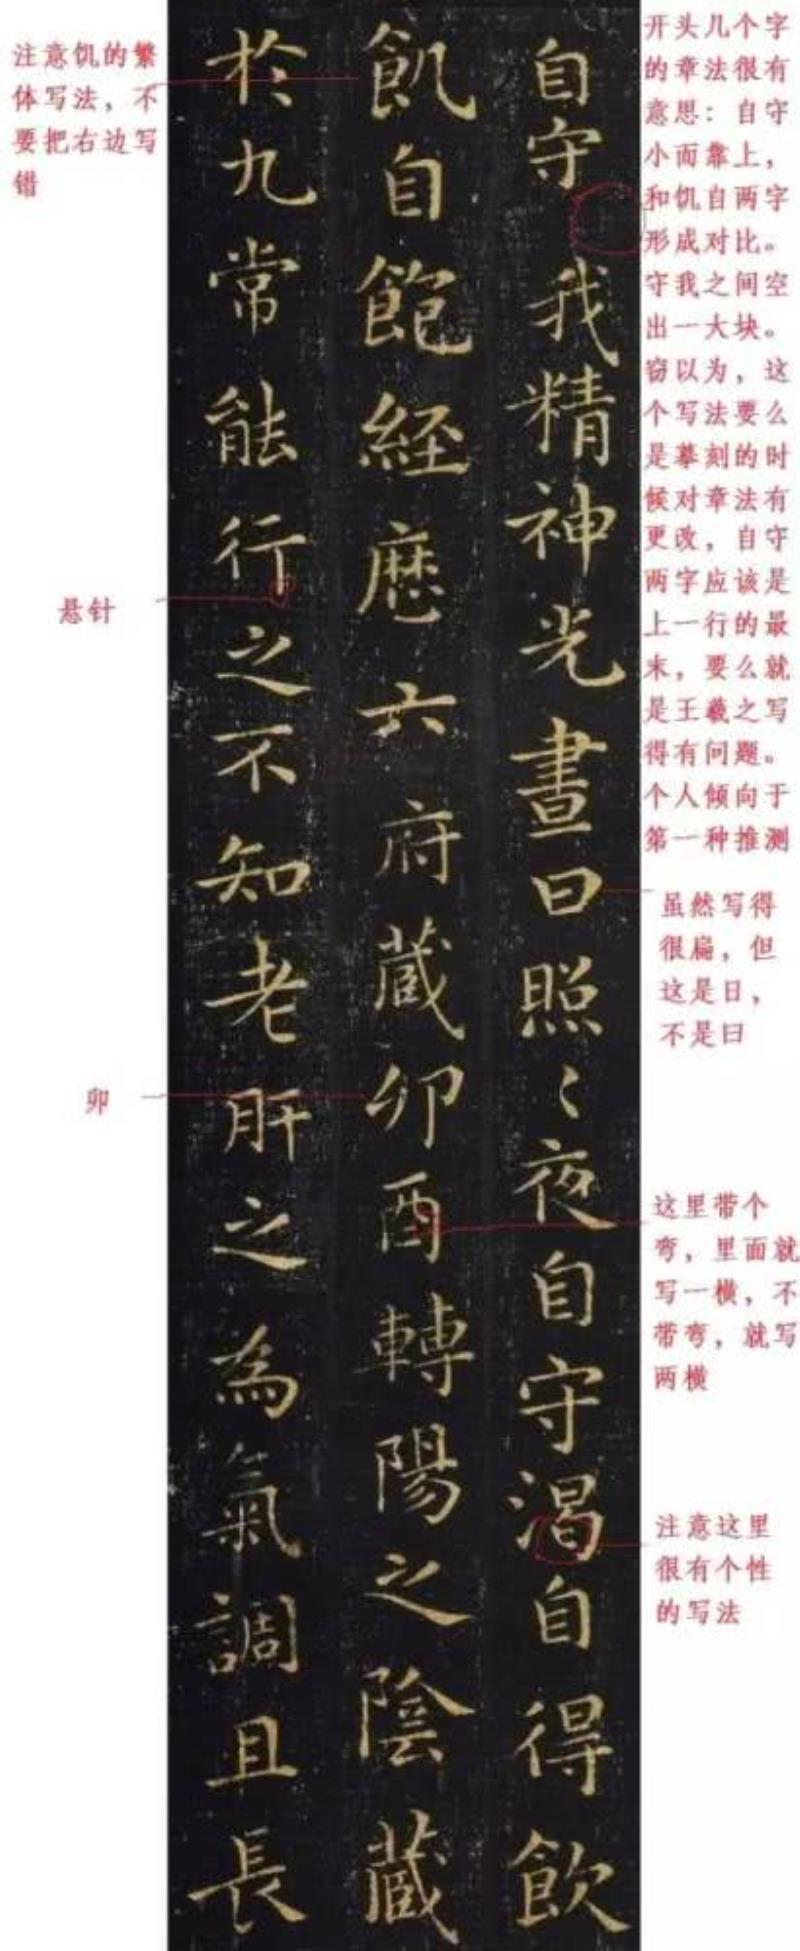 自守我精神光晝日照〻夜自守渴自得飲
飢自飽經歷六府藏卯酉轉陽之陰藏
於九常能行之不知老肝之為氣調且長
开头几个字
的章法很有
意思：自守
小而靠上，
和饥自两字
形成对比。
守我之间空
出一大块。
窃以为，这
个写法要么
是摹刻的时
候对章法有
更改，自守
两字应该是
上一行的最
末，要么就
是王羲之写
得有问题。
个人倾向于
第一种推测
虽然写得
很扁，但
这是日，
不是曰
这里带个
弯，里面就
写一横，不
带弯，就写
两横
注意这里
很有个性
的写法
注意饥的繁
体写法，不
要把右边写
错
悬针
卯